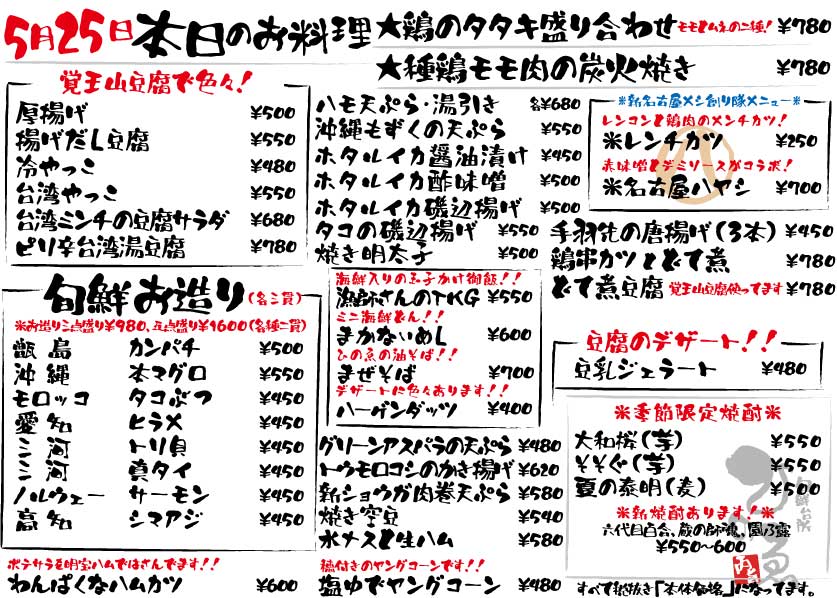 5月25日 本日のお料理
★鶏のタタキ盛り合わせ モモとムネの二種! ¥780
★種鶏モモ肉の炭火焼き ¥780
覚王山豆腐で色々!
厚揚げ ¥500
揚げだし豆腐 ¥550
冷やっこ ¥480
台湾やっこ ¥550
台湾ミンチの豆腐サラダ ¥680
ピリ辛台湾湯豆腐 ¥780
旬鮮お造り(各三貫)
※お造り三点盛り¥980、五点盛り¥1600(各種二貫)
甑島 カンパチ ¥500
沖縄 本マグロ ¥550
モロッコ タコぶつ ¥450
愛知 ヒラメ ¥450
三河 トリ貝 ¥450
三河 真タイ ¥450
ノルウェー サーモン ¥450
高知 シマアジ ¥450
ポテサラを明宝ハムではさんでます!!
わんぱくなハムカツ ¥600
ハモ天ぷら・湯引き 各¥680
沖縄もずくの天ぷら ¥550
ホタルイカ醤油漬け ¥450
ホタルイカ酢味噌 ¥500
ホタルイカ磯辺揚げ ¥500
タコの磯辺揚げ ¥550
焼き明太子 ¥500
海鮮入りの玉子かけ御飯!!
漁師さんのTKG ¥550
ミニ海鮮どん!!
まかないめし ¥600
ひの魚の油そば!!
まぜそば ¥700
デザートに色々あります!!
ハーゲンダッツ ¥400
グリーンアスパラの天ぷら ¥480
トウモロコシのかき揚げ ¥620
新ショウガ肉巻天ぷら ¥580
焼き空豆 ¥540
水ナスと生ハム ¥580
穂付きのヤングコーンです!!
塩ゆでヤングコーン ¥480
※新名古屋メシ創り隊メニュー※
レンコンと鶏肉のメンチカツ!
※レンチカツ ¥250
赤味噌とデミソースがコラボ!
※名古屋ハヤシ ¥700
手羽先の唐揚げ(3本) ¥450
鶏串カツとどて煮 ¥780
どて煮豆腐 覚王山豆腐使ってます ¥780
豆腐のデザート!!
豆乳ジェラート ¥480
※季節限定焼酎※
大和桜(芋) ¥550
そそぐ(芋) ¥550
夏の泰明(麦) ¥500
※新焼酎あります!※
六代目百合、蔵の師魂、園乃露
¥550~600
旬鮮台所
すべて税抜き「本体価格」になってます。